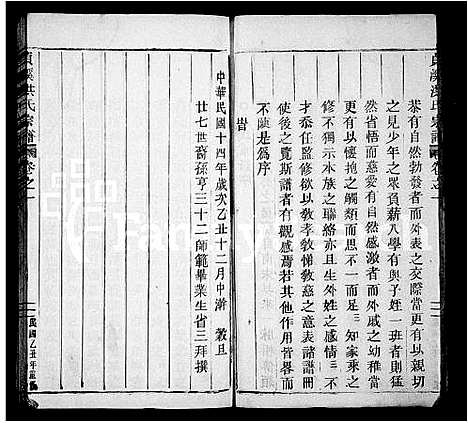 貢溪洪氏宗譜
卷之一
恭有自然勃發者而外表之交際當更有以親切
之見少年之衆負薪入學有與子姪一班者則猛
然省悟而慈愛有自然感激者而外戚之幼稚當
有以懷抱之觸類而思不一而足三知家乘之
修不獨示本族之聯絡亦且生外姓之感情三不
才忝任監修欲以敎孝敎悌敎慈之意表諸譜冊
使後之覽斯譜者有以觀感焉若其他作用皆畧而
不陳是爲序
旹
中華民國十四年歲次乙丑十二月中澣 穀旦
廿七世裔孫亨三十二師範畢業生省三拜撰
貢溪洪氏宗譜
卷之一
民國乙丑年重